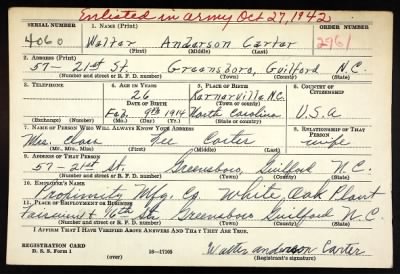 Enlisted in army Oct 27, 1942
SERIAL NUMBER 1. NAME (Print) ORDER NUMBER
4060 Walter Anderson Carter 2961
(First) (Middle) (Last)
2. ADDRESS (Print)
57- 21st St. Greensboro, Guilford N.C.
(Number and street or R. F. D. number) (Town) (County) (State)
3. TELEPHONE 4. AGE IN YEARS 5. PLACE OF BIRTH 6. COUNTRY OF CITIZENSHIP
26 Kernersville N.C.
DATE OF BIRTH (Town or county)
Feb. 9th 1914 North Carolina U.S.A
(Exchange) (Number) (Mo.) (Day) (Yr.) (State or country)
7. NAME OF PERSON WHO WILL ALWAYS KNOW YOUR ADDRESS 8. RELATIONSHIP OF THAT PERSON
Mrs. Clara Carter wife
(Mr., Mrs., Miss) (First) (Middle) (Last)
9. ADDRESS OF THAT PERSON
57- 21st St. Greensboro, Guilford N.C.
(Number and street or R. F. D. number) (Town) (County) (State)
10. EMPLOYER'S NAME
Proximity Mfg. Co. White Oak Plant
11. PLACE OF EMPLOYMENT OR BUSINESS
Fairview & 16th Sts. Greensboro Guilford N.C.
(Number and street or R. F. D. number) (Town) (County) (State)
I AFFIRM THAT I HAVE VERIFIED ABOVE ANSWERS AND THAT THEY ARE TRUE.
REGISTRATION CARD
D. S. S. Form 1 (over) 16-17105 Walter anderson Carter
(Registrant's signature)